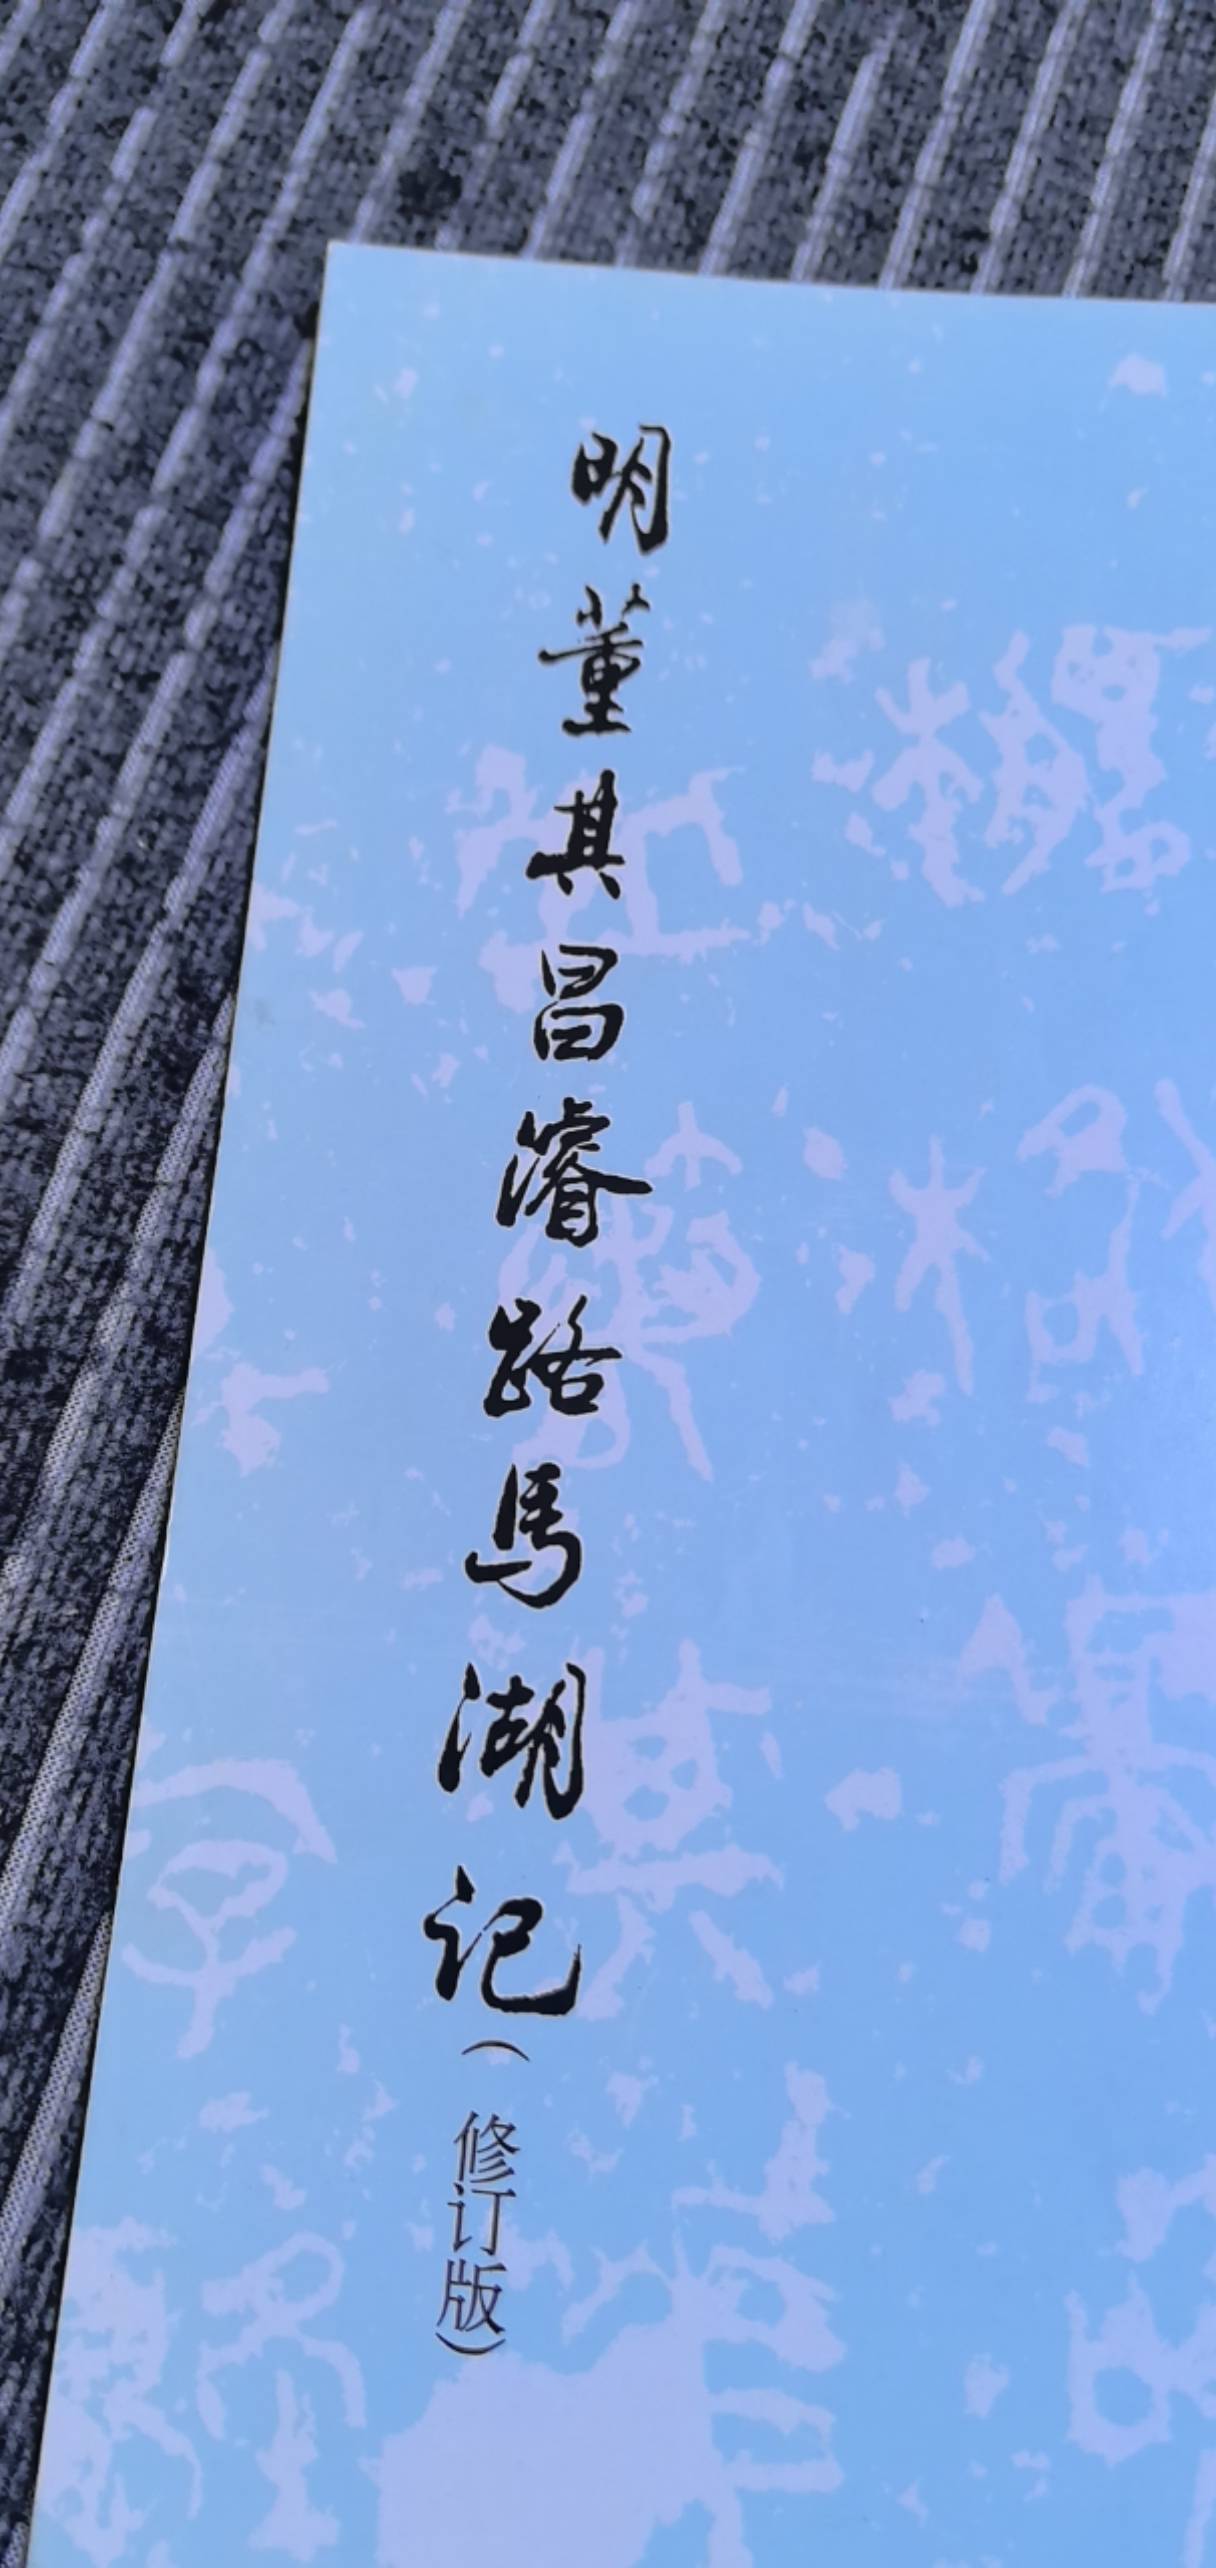 明董其昌濬路马湖记（修订版）